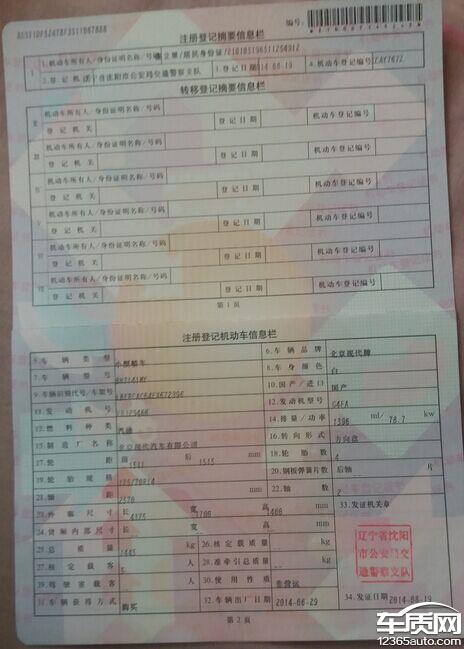 编号:
注册登记摘要信息栏
1.机动车所有人/身份证明名称/号码
2.登记机关 沈阳市公安局交通警察支队 3.登记日期 2014-08-19
转移登记摘要信息栏
机动车所有人/身份证明名称/号码
登记机关 登记日期 机动车登记编号
机动车所有人/身份证明名称/号码
登记机关 登记日期 机动车登记编号
机动车所有人/身份证明名称/号码
登记机关 登记日期 机动车登记编号
机动车所有人/身份证明名称/号码
登记机关 登记日期 机动车登记编号
机动车所有人/身份证明名称/号码
登记机关 登记日期 机动车登记编号
机动车所有人/身份证明名称/号码
登记机关 登记日期 机动车登记编号
第1页
注册登记机动车信息栏
5.车辆类型 小型轿车 6.车辆品牌 北京现代牌
7.车辆型号 8.车身颜色 白
9.车辆识别代号/车架号 10.国产/进口 国产
11.发动机号 12.发动机型号 G4FA
13.燃料种类 汽油 14.排量/功率 1396 ml/ 78.7 kw
15.制造厂名称 北京现代汽车有限公司 16.转向形式 方向盘
17.轮距 前 1511 后 1515 mm 18.轮胎数 4
19.轮胎规格 175/70R14 20.钢板弹簧片数 后轴 -- 片
21.轴距 2570 mm 22.轴数 2
23.外廓尺寸 长 4375 宽 1700 高 1460 mm 33.发证机关章
24.货厢内部尺寸 长 宽 高 mm
25.总质量 1445 kg 26.核定载质量 kg
27.核定载客 5 人 28.准牵引总质量 kg
29.驾驶室载客 人 30.使用性质 非营运
31.车辆获得方式 购买 32.车辆出厂日期 2014-06-29 34.发证日期 2014-08-19
辽宁省沈阳
市公安局交
通警察支队
第2页
车质网
12365auto.com